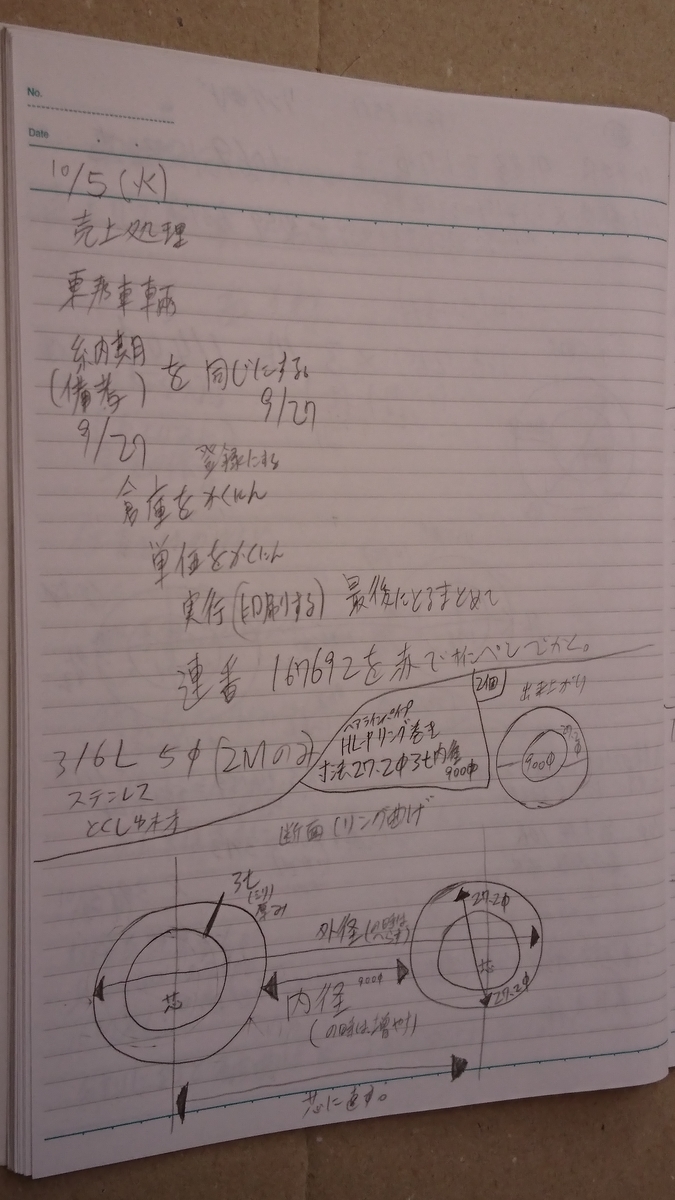 No.
Date
10/5(火)
売上処理
東邦車輛
納期
(備考)
を同じにする。
9/27
9/27
登録にする
倉庫をかくにん
単価をかくにん
実行(印刷する) 最後にとるまとめて
連番 167692を赤でボールペンでかく。
316L 5φ(2Mのみ)
ステンレス
とくしゅ材
ヘアラインパイプ
HL-Pリング巻き
寸法27.2φ3t内径
900φ
2個
出来上がり
27.2φ
900φ
断面(リング曲げ
3t
(ミリ)
厚み
外径
27.2φ
芯
芯
内径
900φ
(の時は増やす)
27.2φ
芯に直す。